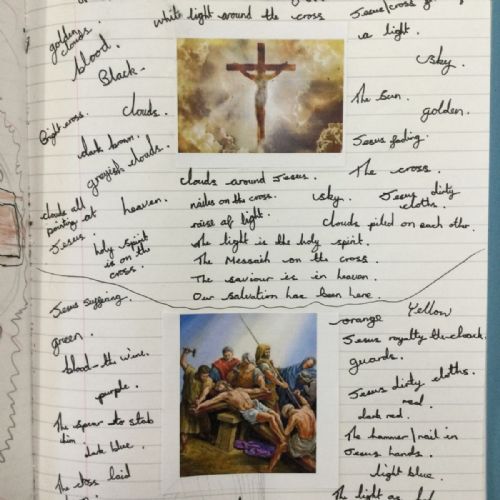 white light around the cross
Jesus/cross
golden clouds.
a light.
blood.
Sky.
Black-
The Sun.
Clouds.
golden.
dark brown.
Jesus fading.
greyish clouds.
The cross.
clouds around Jesus.
heaven.
nails on the cross.
Sky.
Jesus dirty cloths.
clouds all pointing at Jesus.
light.
Clouds piled on each other.
holy spirit is on the cross.
The light is the holy spirit.
The Messaih on the cross
The saviour is in heaven.
Our salvation has been here.
Jesus suffering.
orange
Yellow
green.
Jesus royalty the cloack.
guards.
blood- the wine.
Jesus dirty cloths.
red.
purple.
dark red.
The spear to stab him
The hammer/nail in Jesus hands.
dark blue.
light blue.
The cross laid
The light as